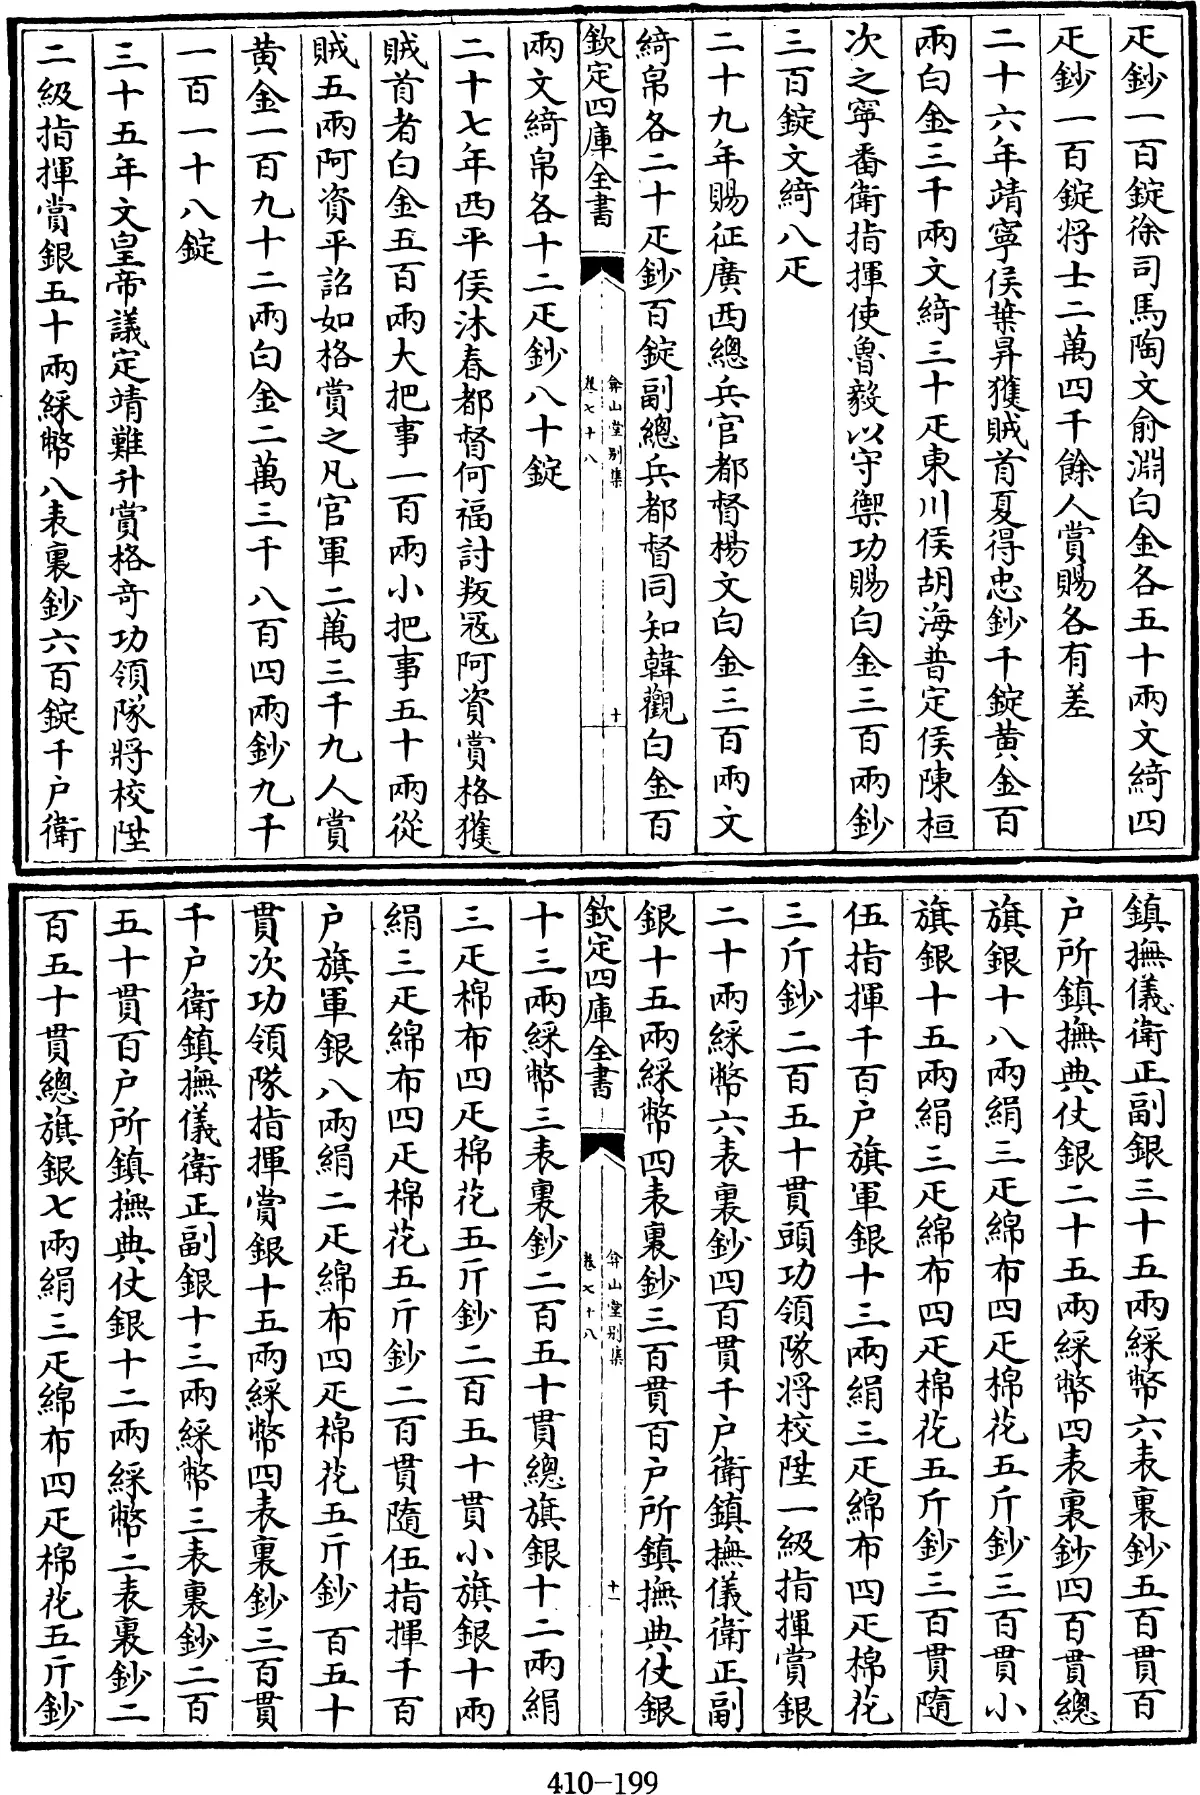 疋鈔一百錠徐司馬陶文俞淵白金各五十兩文綺四
疋鈔一百錠将士二萬四千餘人賞賜各有差
二十六年靖寧侯葉昇獲賊首夏得忠鈔千錠黄金百
兩白金三千兩文綺三十疋東川侯胡海普定侯陳桓
次之寧番衛指揮使魯毅以守禦功賜白金三百兩鈔
三百錠文綺八疋
二十九年賜征廣西總兵官都督楊文白金三百兩文
綺帛各二十疋鈔百錠副總兵都督同知韓觀白金百
欽定四庫全書
弇山堂别集
卷七十八
十
兩文綺帛各十二疋鈔八十錠
二十七年西平侯沐春都督何福討叛冦阿資賞格獲
賊首者白金五百兩大把事一百兩小把事五十兩從
賊五兩阿資平詔如格賞之凡官軍二萬三千九人賞
黄金一百九十二兩白金二萬三千八百四兩鈔九千
一百一十八錠
三十五年文皇帝議定靖難升賞格竒功領隊將校陞
二級指揮賞銀五十兩綵幣八表裏鈔六百錠千户衛
鎮撫儀衛正副銀三十五兩綵幣六表裏鈔五百貫百
户所鎮撫典仗銀二十五兩綵幣四表裏鈔四百貫總
旗銀十八兩絹三疋綿布四疋棉花五斤鈔三百貫小
旗銀十五兩絹三疋綿布四疋棉花五斤鈔三百貫隨
伍指揮千百户旗軍銀十三兩絹三疋綿布四疋棉花
三斤鈔二百五十貫頭功領隊将校陞一級指揮賞銀
二十兩綵幣六表裏鈔四百貫千户衛鎮撫儀衛正副
銀十五兩綵幣四表裏鈔三百貫百户所鎮撫典仗銀
欽定四庫全書
弇山堂别集
卷七十八
十一
十三兩綵幣三表裏鈔二百五十貫總旗銀十二兩絹
三疋棉布四疋棉花五斤鈔二百五十貫小旗銀十兩
絹三疋綿布四疋棉花五斤鈔二百貫隨伍指揮千百
户旗軍銀八兩絹二疋綿布四疋棉花五斤鈔一百五十
貫次功領隊指揮賞銀十五兩綵幣四表裏鈔三百貫
千户衛鎮撫儀衛正副銀十三兩綵幣三表裏鈔二百
五十貫百户所鎮撫典仗銀十二兩綵幣二表裏鈔二
百五十貫總旗銀七兩絹三疋綿布四疋棉花五斤鈔
410-199